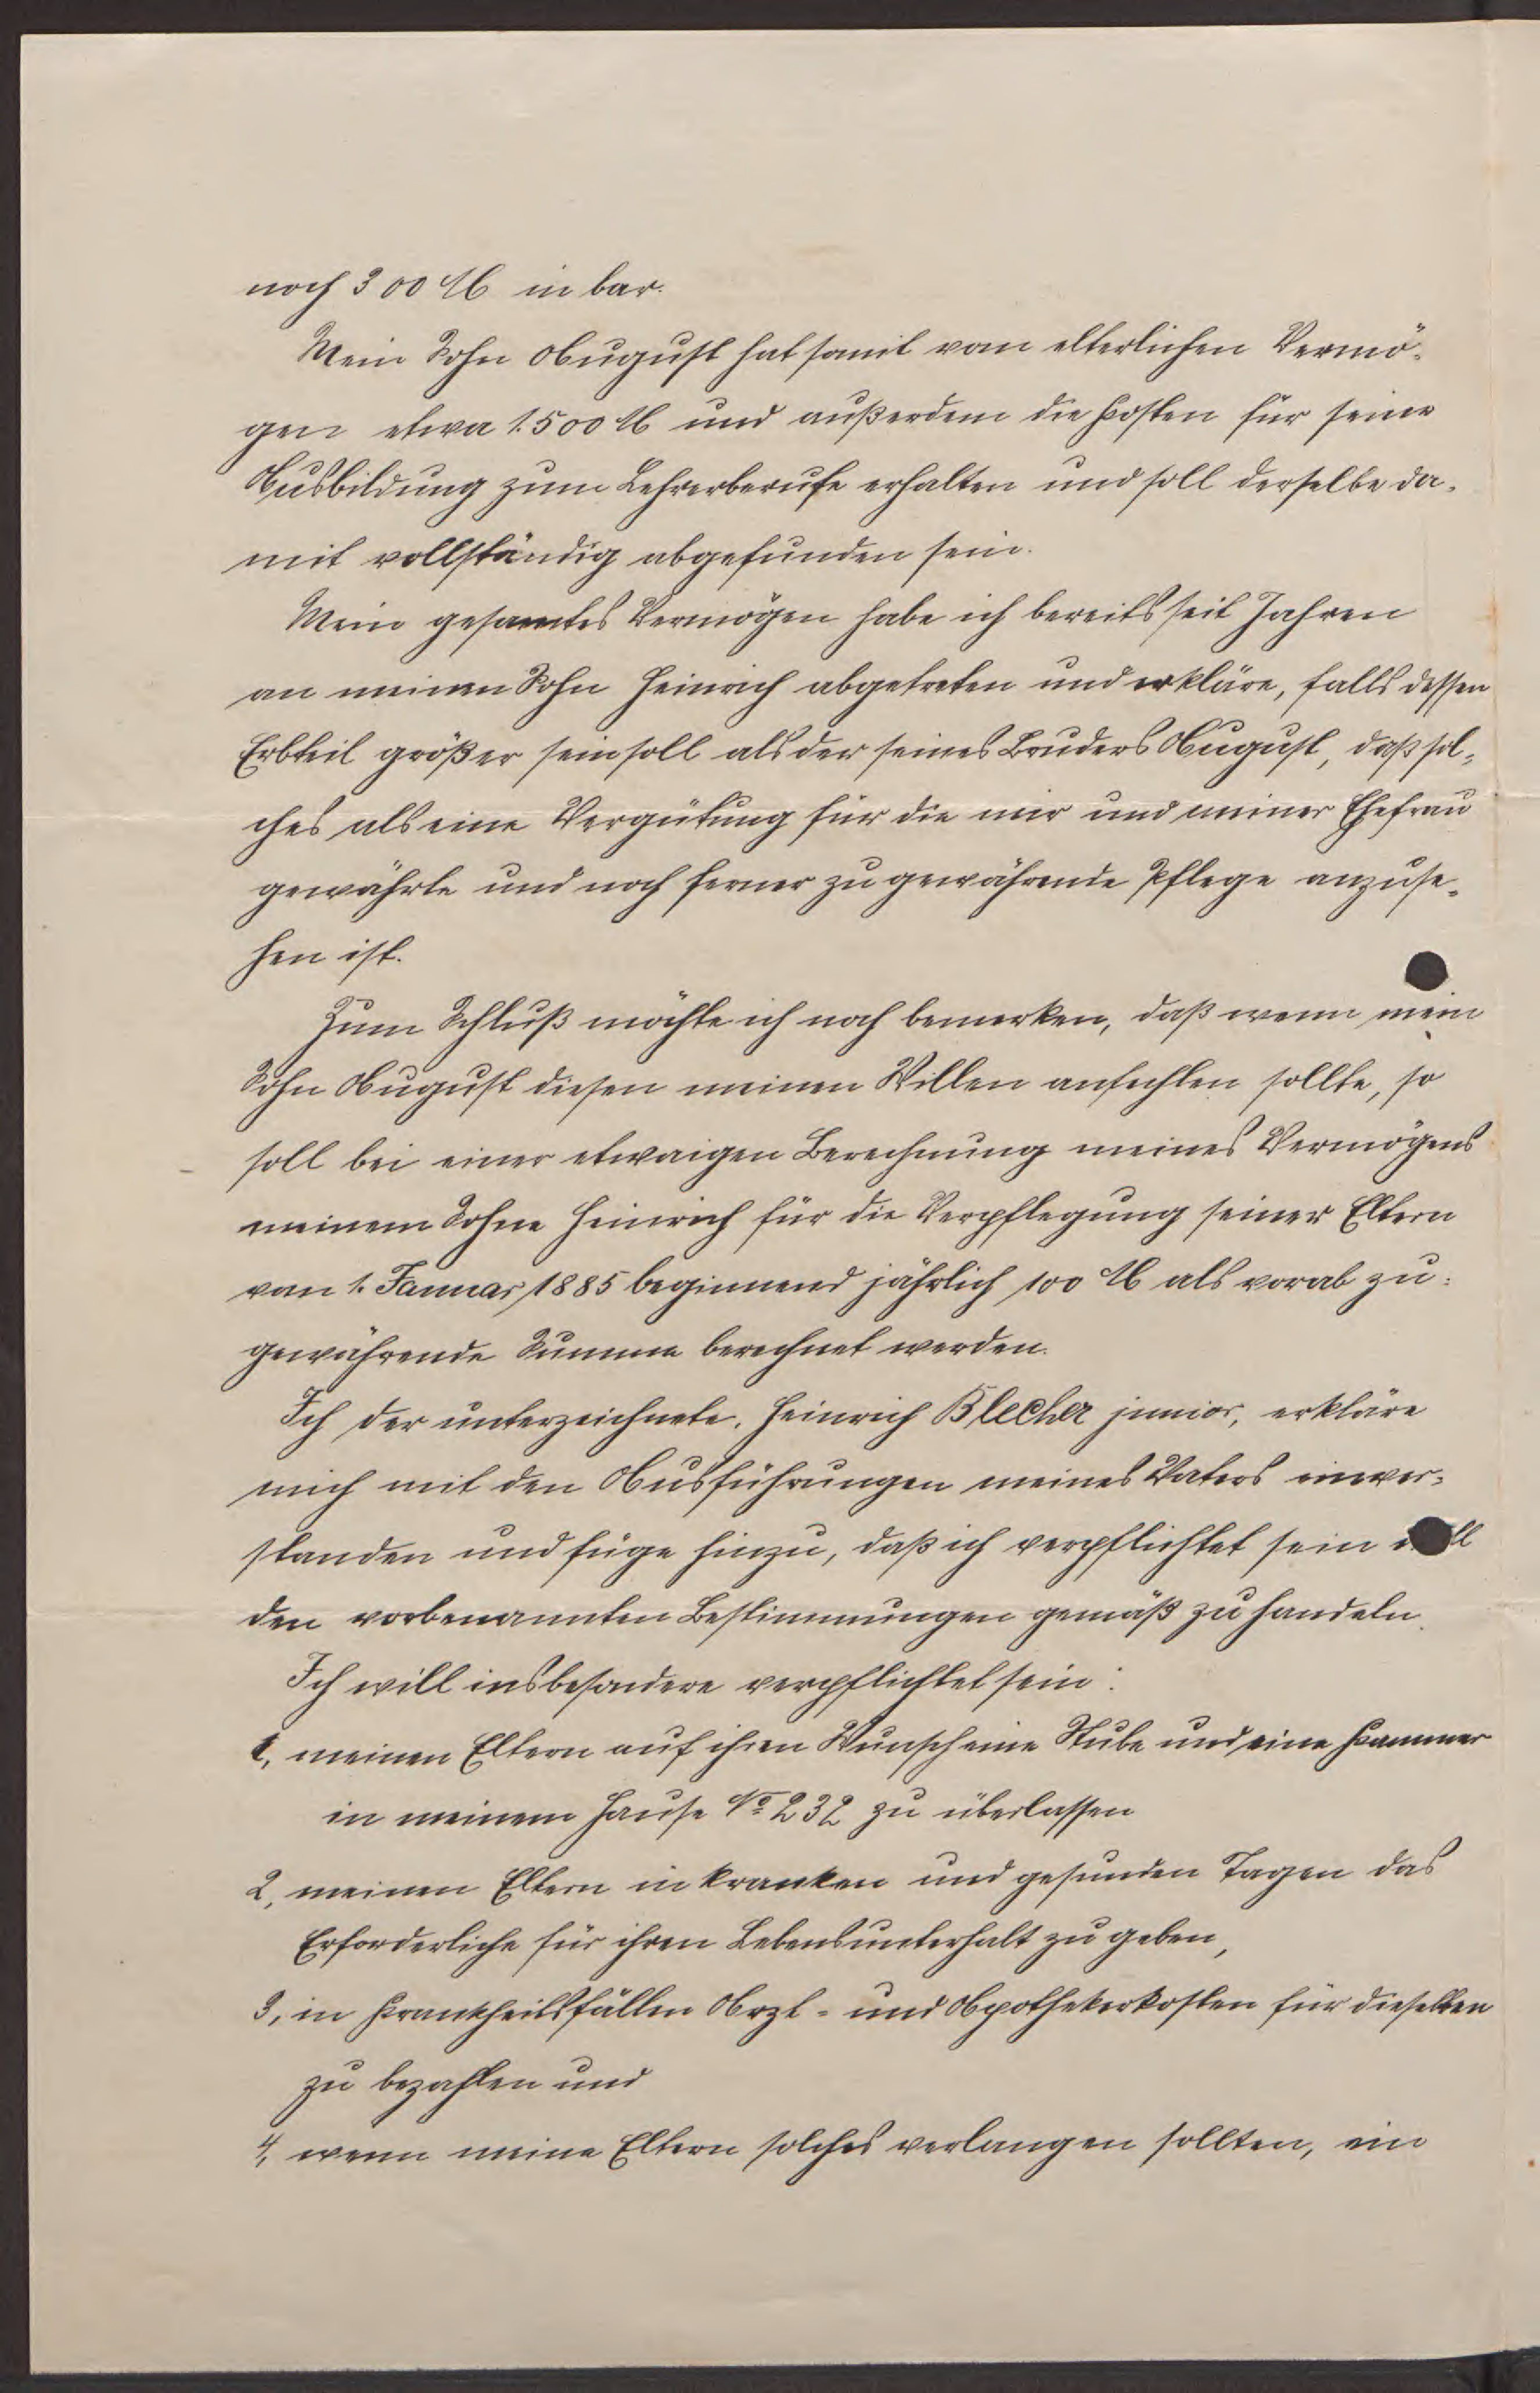 noch 300 ℳ in bar.
Mein Sohn August hat somit vom elterlichen Vermö-
gen etwa 1500 ℳ und außerdem die Kosten für seine
Ausbildung zum Lehrerberufe erhalten und soll derselbe da-
mit vollständig abgefunden sein.
Mein gesamtes Vermögen habe ich bereits seit Jahren
an meinen Sohn Heinrich abgetreten und erkläre, falls dessen
Erbteil größer sein soll als der seines Bruders August, daß sol-
ches als eine Vergütung für die mir und meiner Ehefrau
gewährte und noch ferner zu gewährende Pflege anzuse-
hen ist.
Zum Schluß möchte ich noch bemerken, daß wenn mein
Sohn August diesen meinen Willen anfechten sollte, so
soll bei einer etwaigen Berechnung meines Vermögens
meinem Sohne Heinrich für die Verpflegung seiner Eltern
vom 1. Januar 1885 beginnend jährlich 100 ℳ als vorab zu-
gewährende Summe berechnet werden.
Ich der unterzeichnete, Heinrich Blecher junior, erkläre
mich mit den Ausführungen meines Vaters einver-
standen und füge hinzu, daß ich verpflichtet sein
den vorbenannten Bestimmungen gemäß zu handeln.
Ich will insbesondere verpflichtet sein:
1, meinen Eltern auf ihren Wunsch eine Stube und eine Kammer
in meinem Hause No 232 zu überlassen
2, meinen Eltern in kranken und gesunden Tagen das
Erforderliche für ihren Lebensunterhalt zu geben,
3, in Krankheitsfällen Arzt- und Apothekerkosten für dieselben
zu bezahlen und
4, wenn meine Eltern solches verlangen sollten, ein